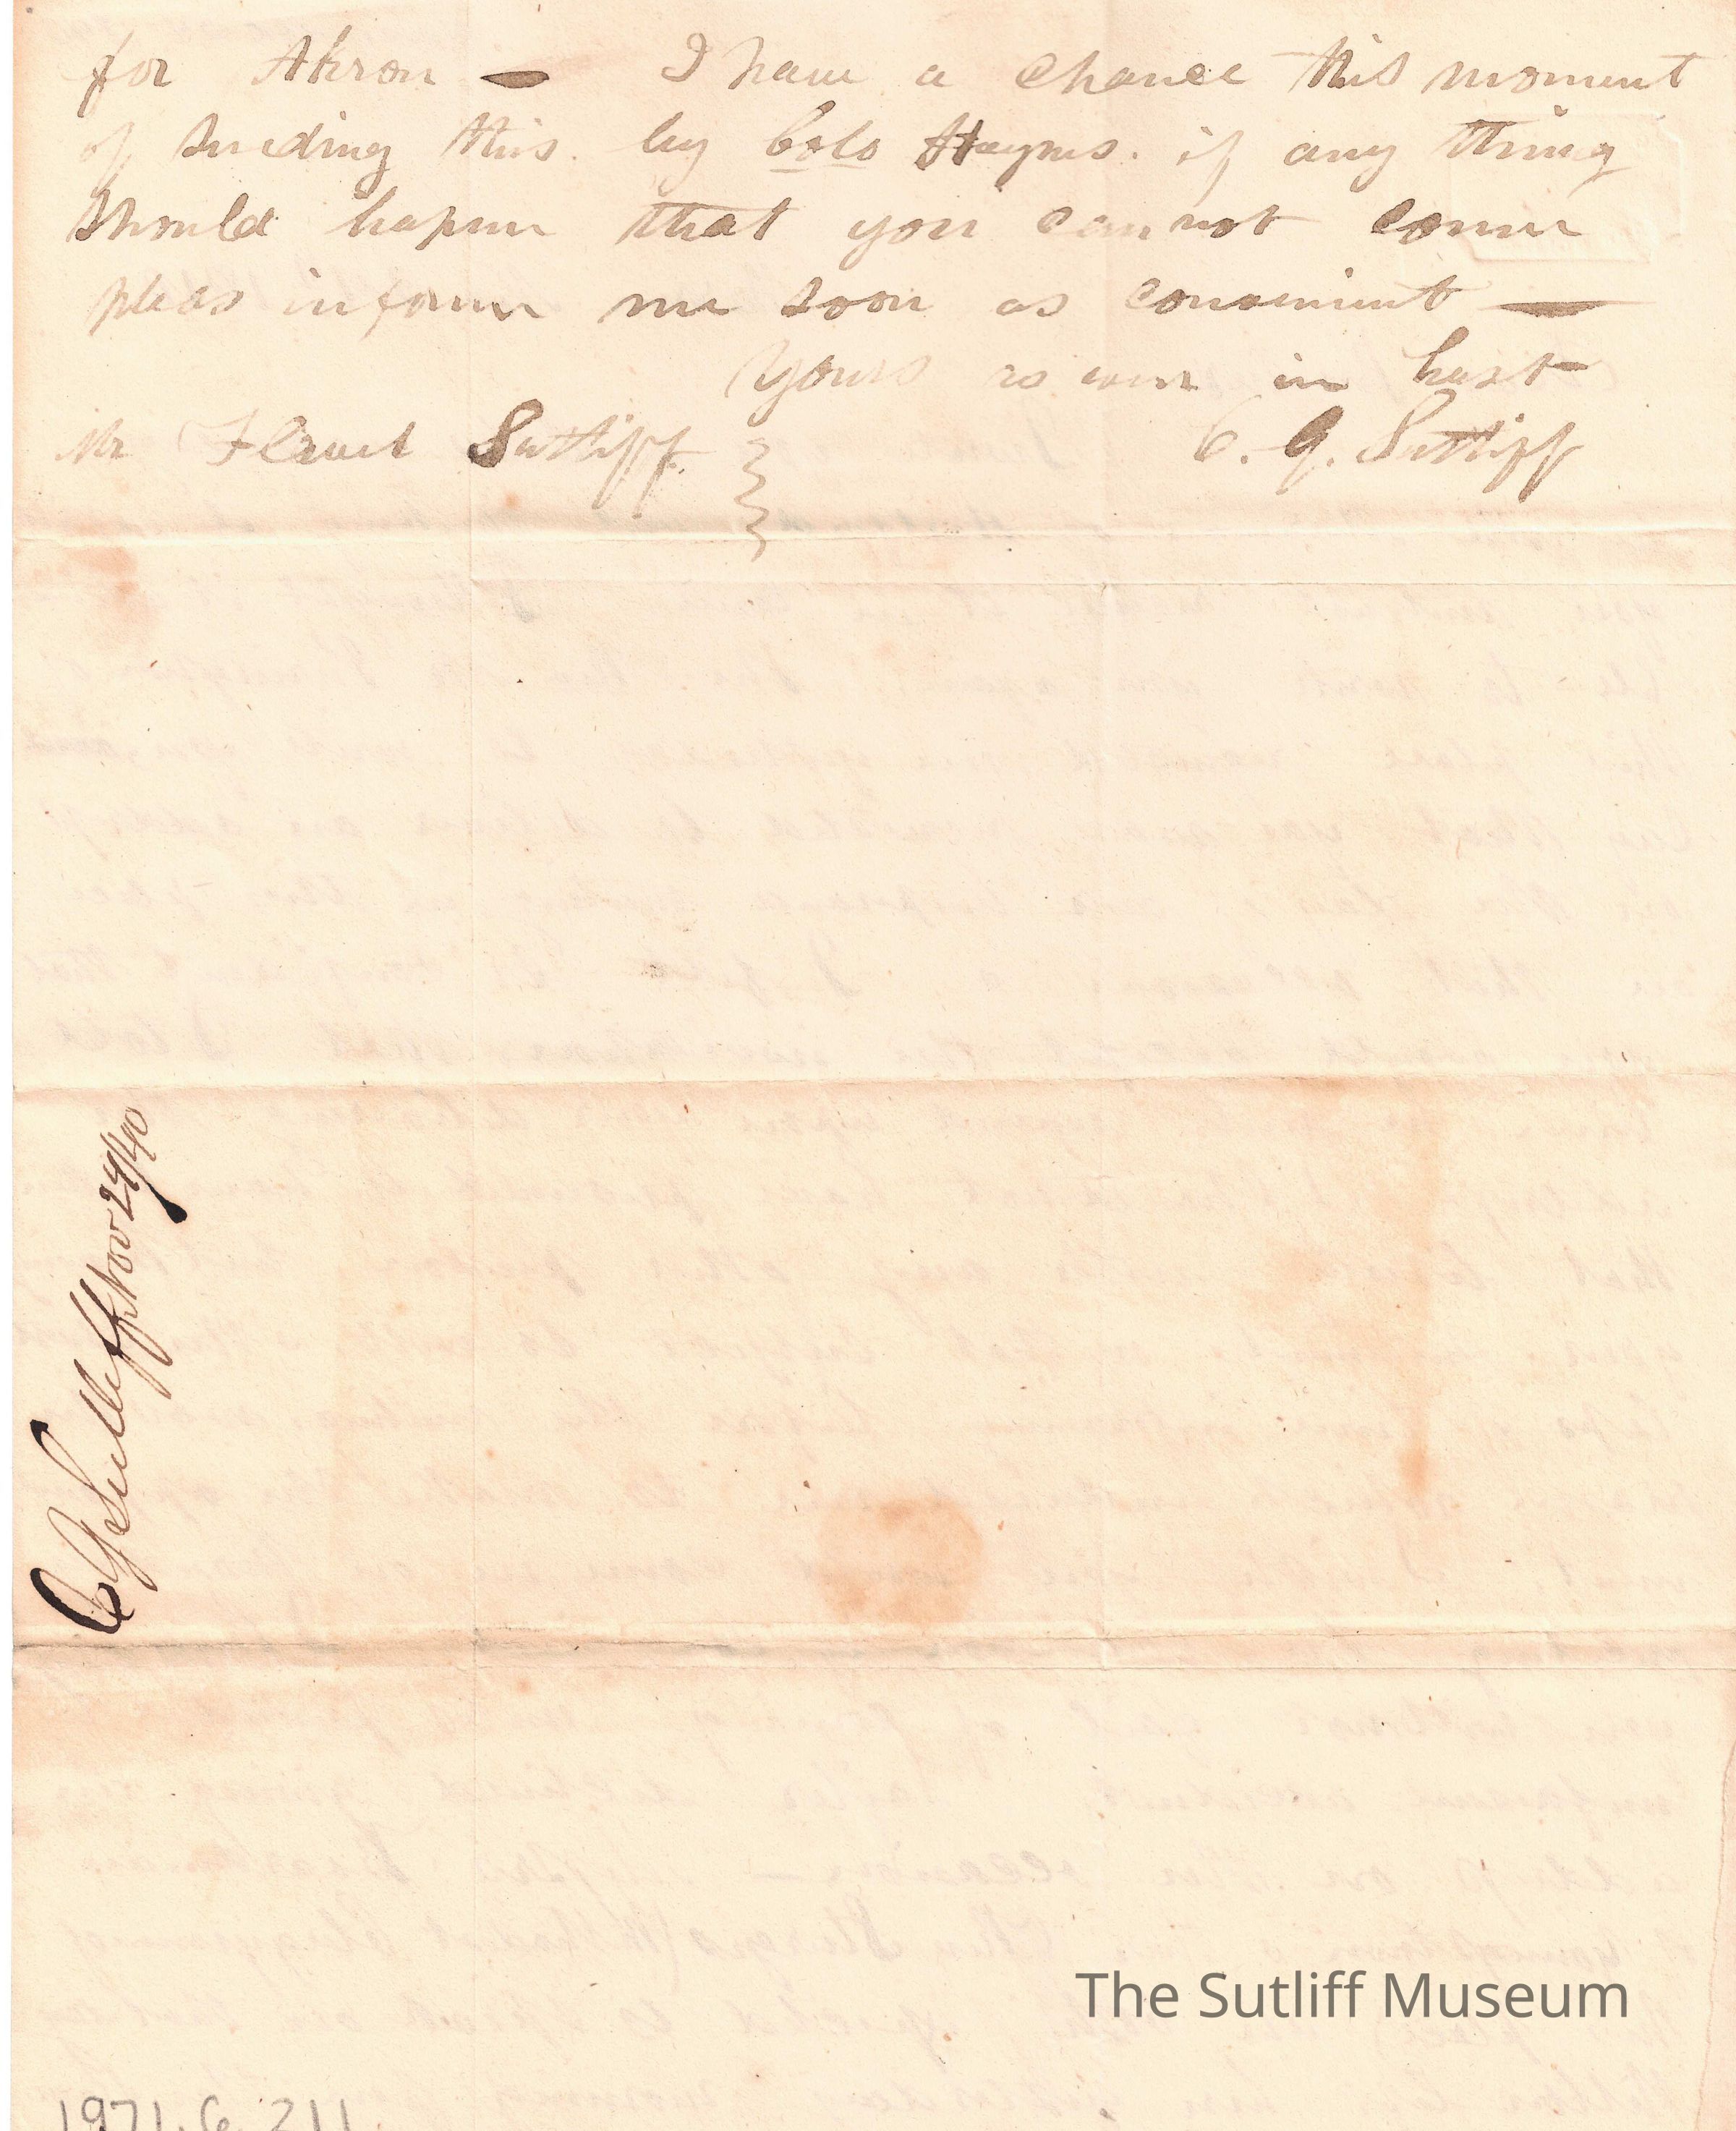 for Akron — I have a chance this moment
of sending this. by Colo Haynes. if any thing
Should hapen that you can not come
pleas inform me soon as convenient —
Yours as ever in hast
Mr Flavel Sutliff. C. G. Sutliff
C G Sutliff Nov 24/40
The Sutliff Museum
1971.6.211